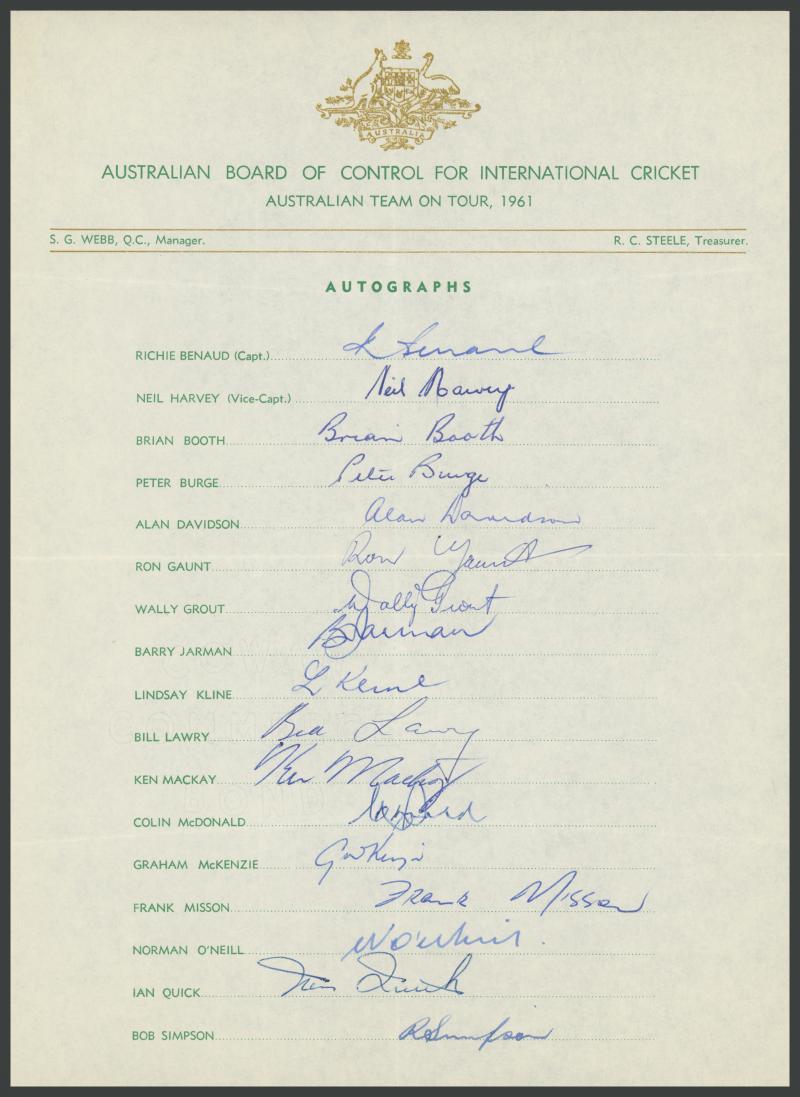 AUSTRALIA
AUSTRALIAN BOARD OF CONTROL FOR INTERNATIONAL CRICKET
AUSTRALIAN TEAM ON TOUR, 1961
S. G. WEBB, Q.C., Manager. R. C. STEELE, Treasurer.
AUTOGRAPHS
RICHIE BENAUD (Capt.) R Benaud
NEIL HARVEY (Vice-Capt.) Neil Harvey
BRIAN BOOTH Brian Booth
PETER BURGE Peter Burge
ALAN DAVIDSON Alan Davidson
RON GAUNT Ron Gaunt
WALLY GROUT Wally Grout
BARRY JARMAN B Jarman
LINDSAY KLINE L Kline
BILL LAWRY Bill Lawry
KEN MACKAY Ken Mackay
COLIN McDONALD
GRAHAM McKENZIE G McKenzie
FRANK MISSON Frank Misson
NORMAN O'NEILL N O'Neill
IAN QUICK Ian Quick
BOB SIMPSON R Simpson